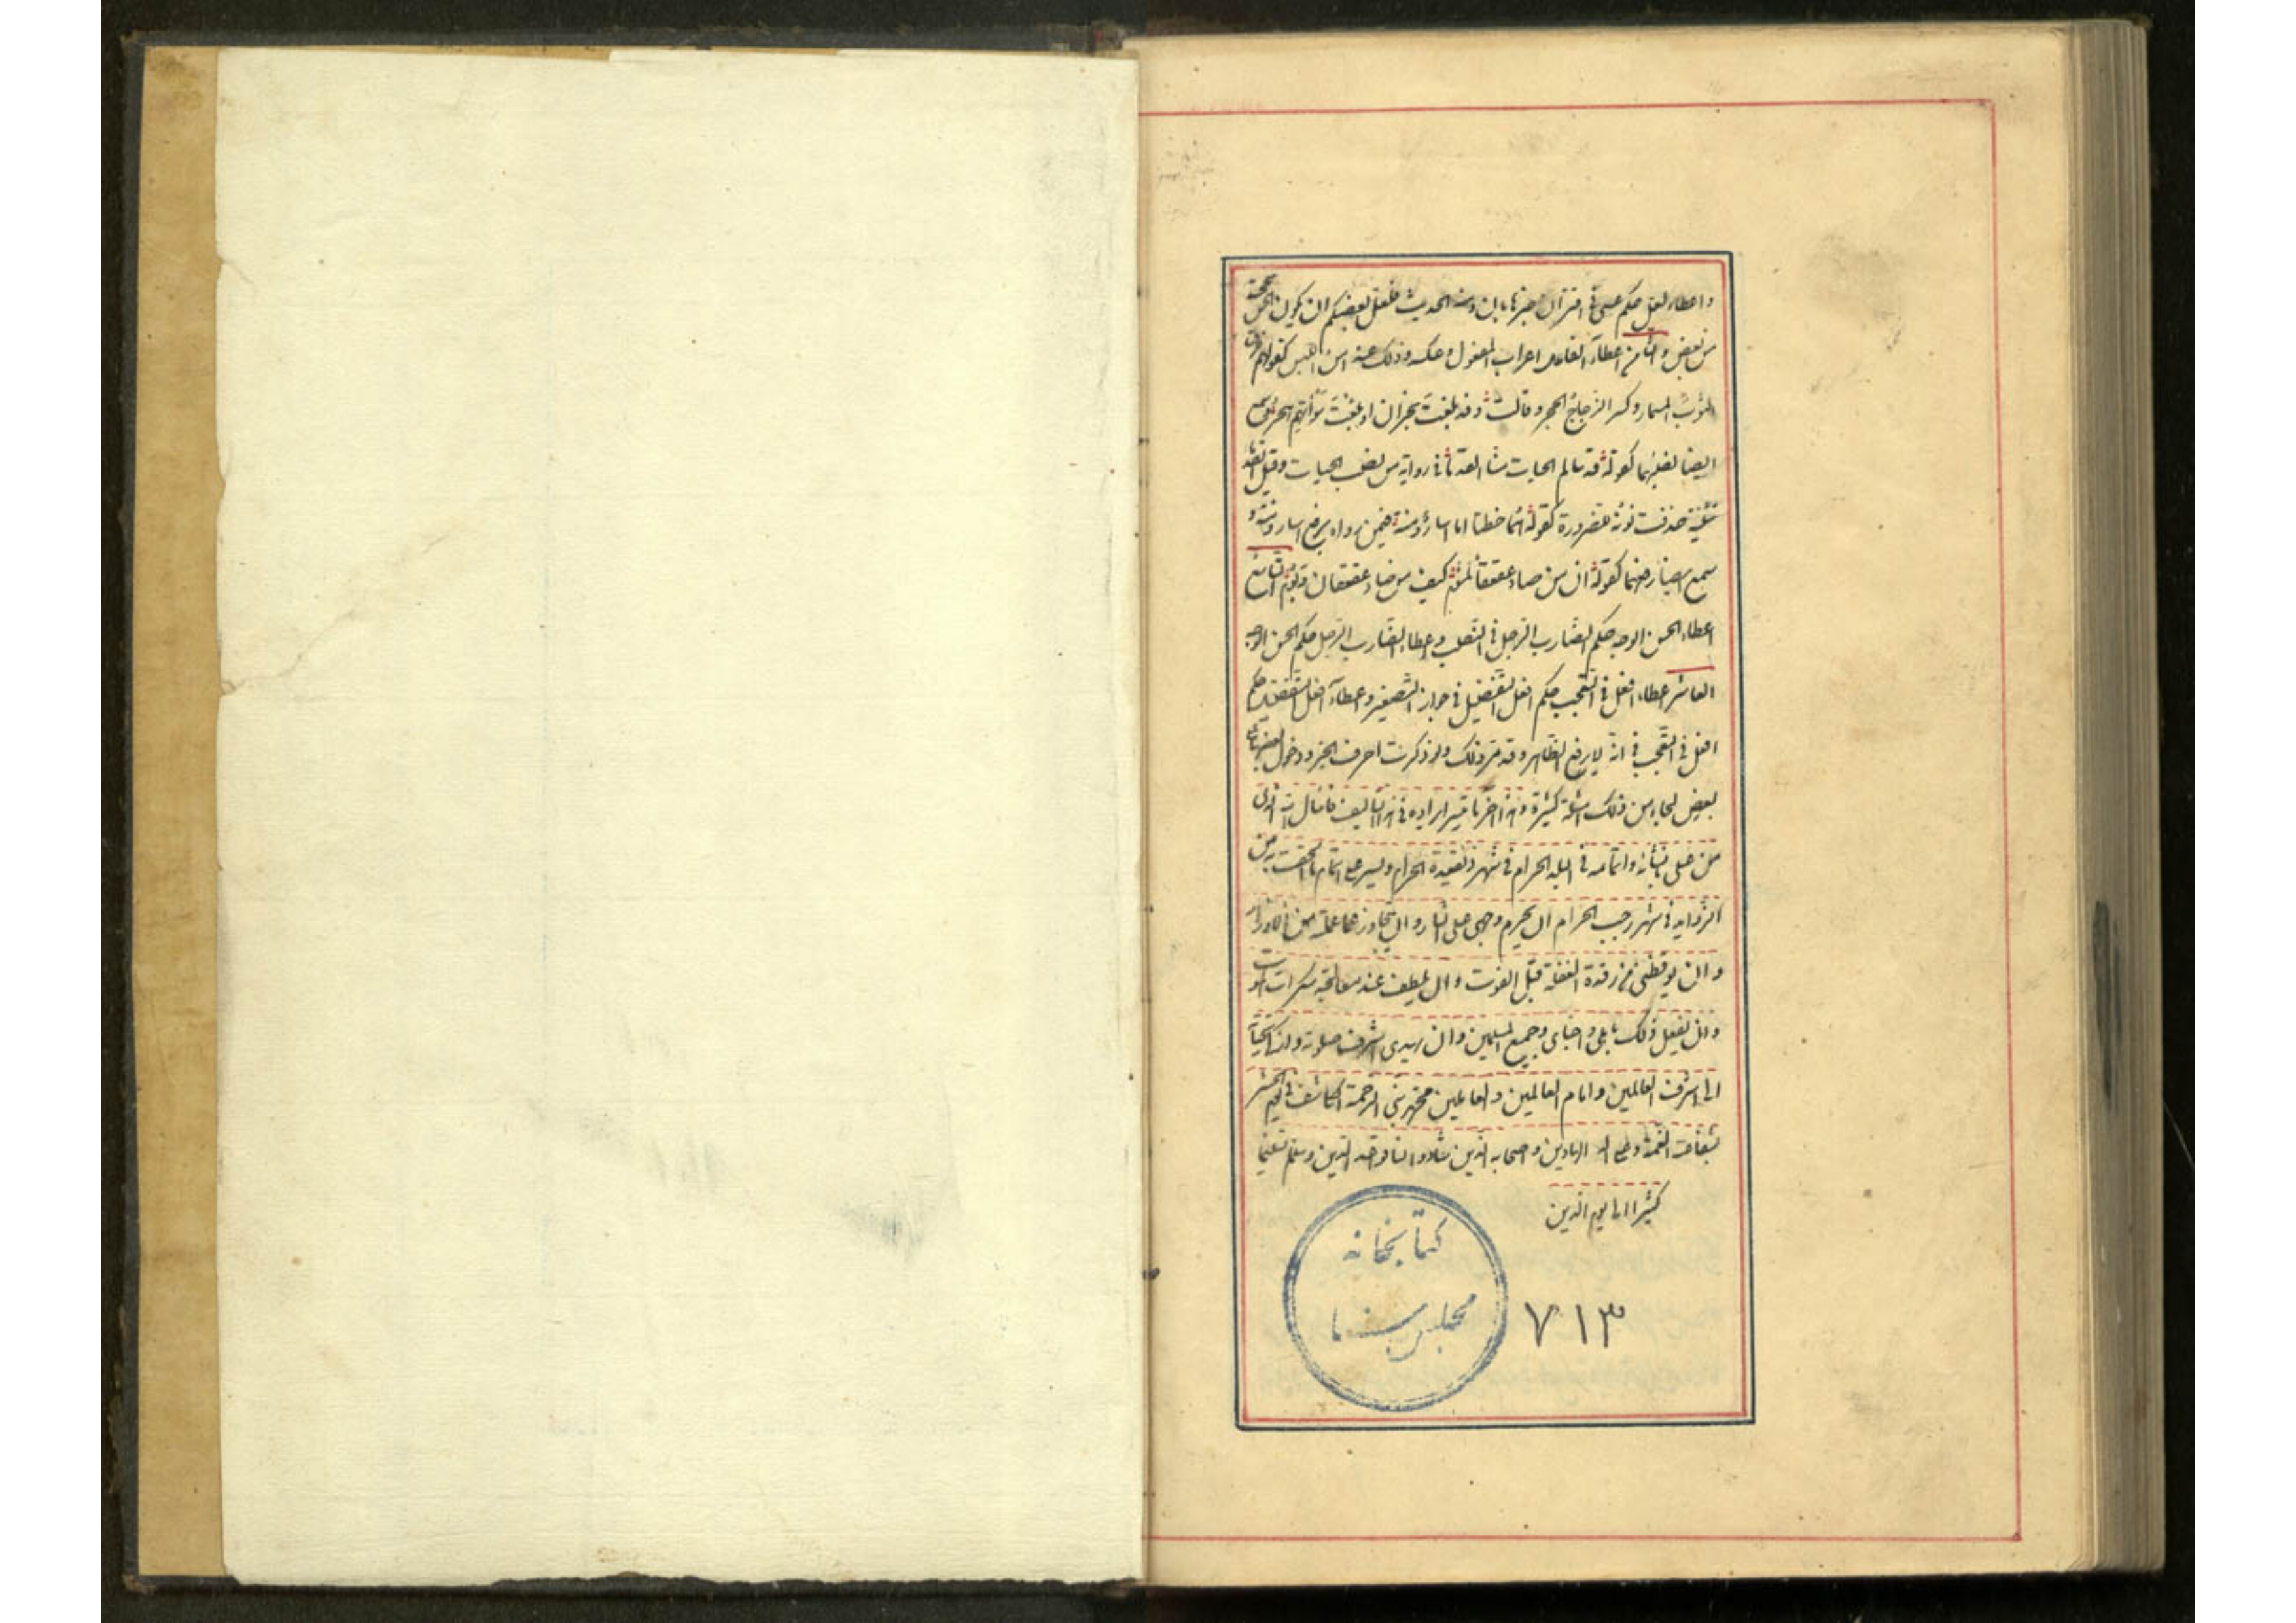 واعطاء لعل حكم عسى في اقتران خبرها بان ومنه الحديث فلعل بعضكم ان يكون الحن بحجته
من بعض والثامن اعطاء الفاعل اعراب المفعول وعكسه وذلك عند امن اللبس كقولهم خرق
الثوب المسمار وكسر الزجاج الحجر وقالت وقد بلغت نجران او بلغت سوآتهم هجر وسمع
ايضا نصبهما كقوله قد سالم الحيات منه القدما في رواية من نصب الحيات وقيل القدما
تثنية حذفت نونه للضرورة كقوله هما خطتا اما اسار ومنة فيمن رواه برفع اسار ومنة و
سمع ايضا رفعهما كقوله ان من صاد عقعقا لمشوم كيف من صاد عقعقان وبوم التاسع
اعطاء الحسن الوجه حكم الضارب الرجل في النصب واعطاء الضارب الرجل حكم الحسن الوجه
العاشر اعطاء افعل في التعجب حكم افعل التفضيل في جواز التصغير واعطاء افعل التفضيل حكم
افعل في التعجب في انه لا يرفع الظاهر وقد مر ذلك ولو ذكرت احرف الجر ودخول بعضها على
بعض لجاء من ذلك امثلة كثيرة وهذا آخر ما تيسر ايراده في هذا التاليف فاسال الله الذي
من على بانشائه واتمامه في البلد الحرام في شهر ذي القعدة الحرام ويسر على اتمام ما الحقت به من
الزوايد في شهر رجب الحرام ان يحرم وجهي على النار وان يتجاوز عما تحملته من الاوزار
وان يوقظني من رقدة الغفلة قبل الفوت وان يلطف عند معالجة سكرات الموت
وان يفعل ذلك باهلي واحبابي وجميع المسلمين وان يهدي اشرف صلوته وازكى تحياته
الى اشرف العالمين وامام العالمين والعاملين محمد نبي الرحمة الكاشف في يوم الحشر
بشفاعته الغمة وعلى اله الهادين واصحابه الذين شادوا لنا قواعد الدين وسلم تسليما
كثيرا الى يوم الدين
كتابخانه
مجلس سنا
۷۱۳